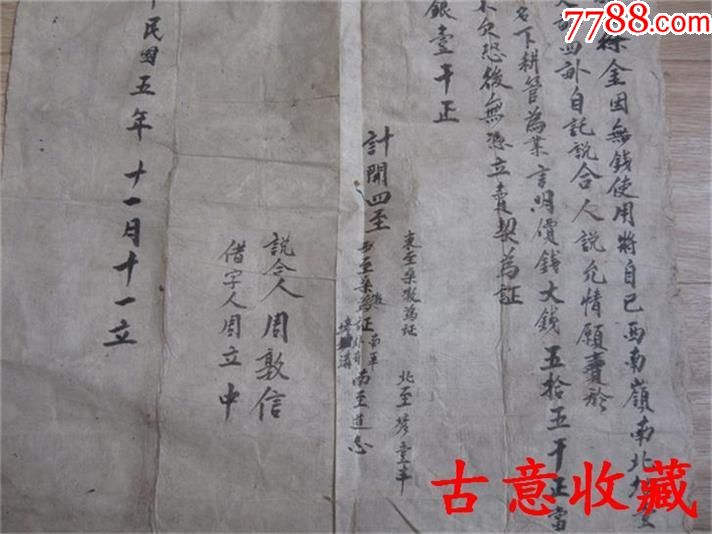 金因無錢使用將自己西南嶺南北
自託説合人説允情願賣於
名下耕管為業言明價錢大錢五拾五千正當
不欠恐後無憑立賣契為証
銀壹千正
計開四至
東至桑墩為証
北至
西至桑
為証
南至道心
説合人周敦信
借字人周立中
民國五年十一月十一立
7788.com
中国收藏热线
古意收藏